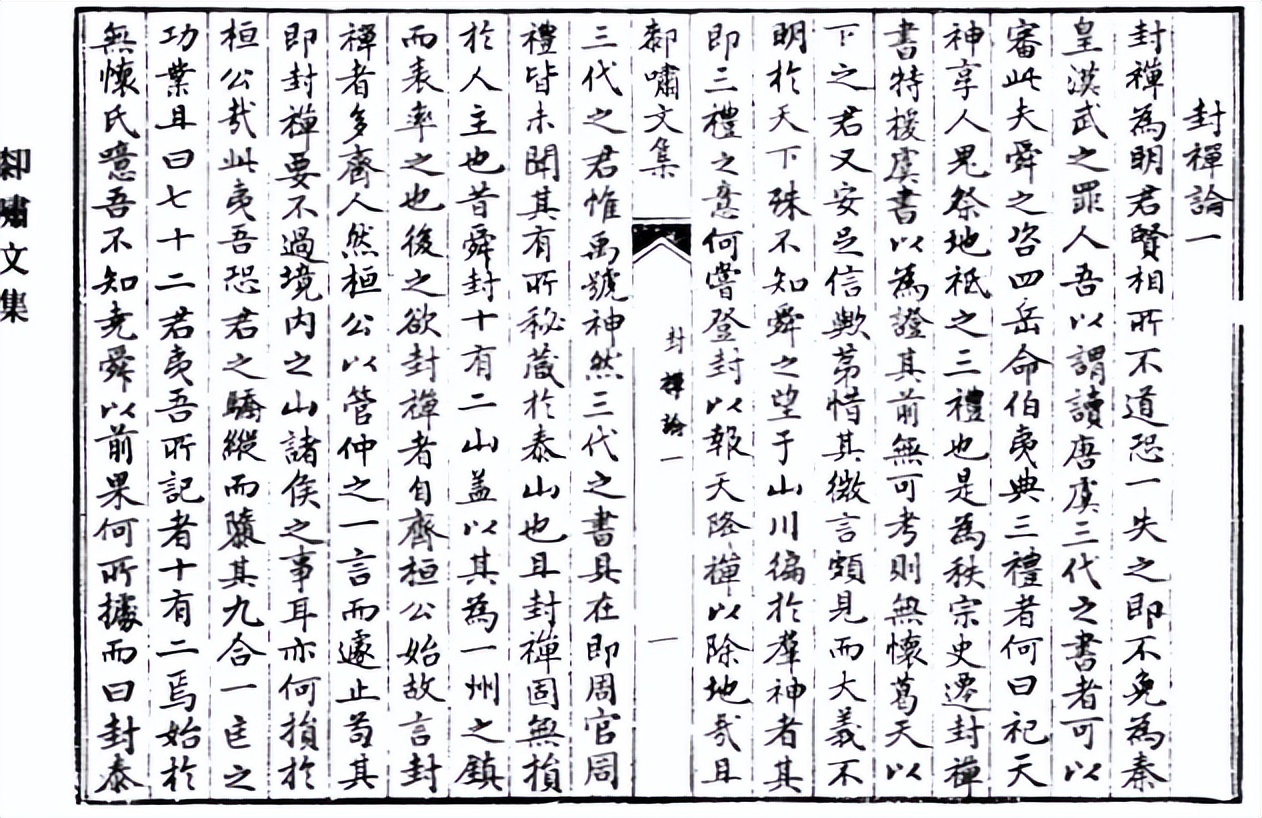 封禪論一
封禪為明君賢相所不道恐一失之即不免為秦
皇漢武之罪人吾以謂讀唐虞三代之書者可以
審此夫舜之咨四岳命伯夷典三禮者何曰祀天
神享人鬼祭地祇之三禮也是為秩宗史遷封禪
書特援虞書以為證其前無可考則無懷葛天以
下之君又安足信歟第惜其微言頗見而大義不
明於天下殊不知舜之望于山川徧於羣神者其
即三禮之意何嘗登封以報天降禪以除地哉且
郗嘯文集
封禪論一
一
三代之君惟禹號神然三代之書具在即周官周
禮皆未聞其有所秘蔵於泰山也且封禪固無損
於人主也昔舜封十有二山蓋以其為一州之鎮
而表率之也後之欲封禪者自齊桓公始故言封
禪者多齊人然桓公以管仲之一言而遽止苟其
即封禪要不過境内之山諸侯之事耳亦何損於
桓公哉此夷吾恐君之驕縱而隳其九合一匡之
功業且曰七十二君夷吾所記者十有二焉始於
無懷氏噫吾不知堯舜以前果何所據而曰封泰
郗嘯文集